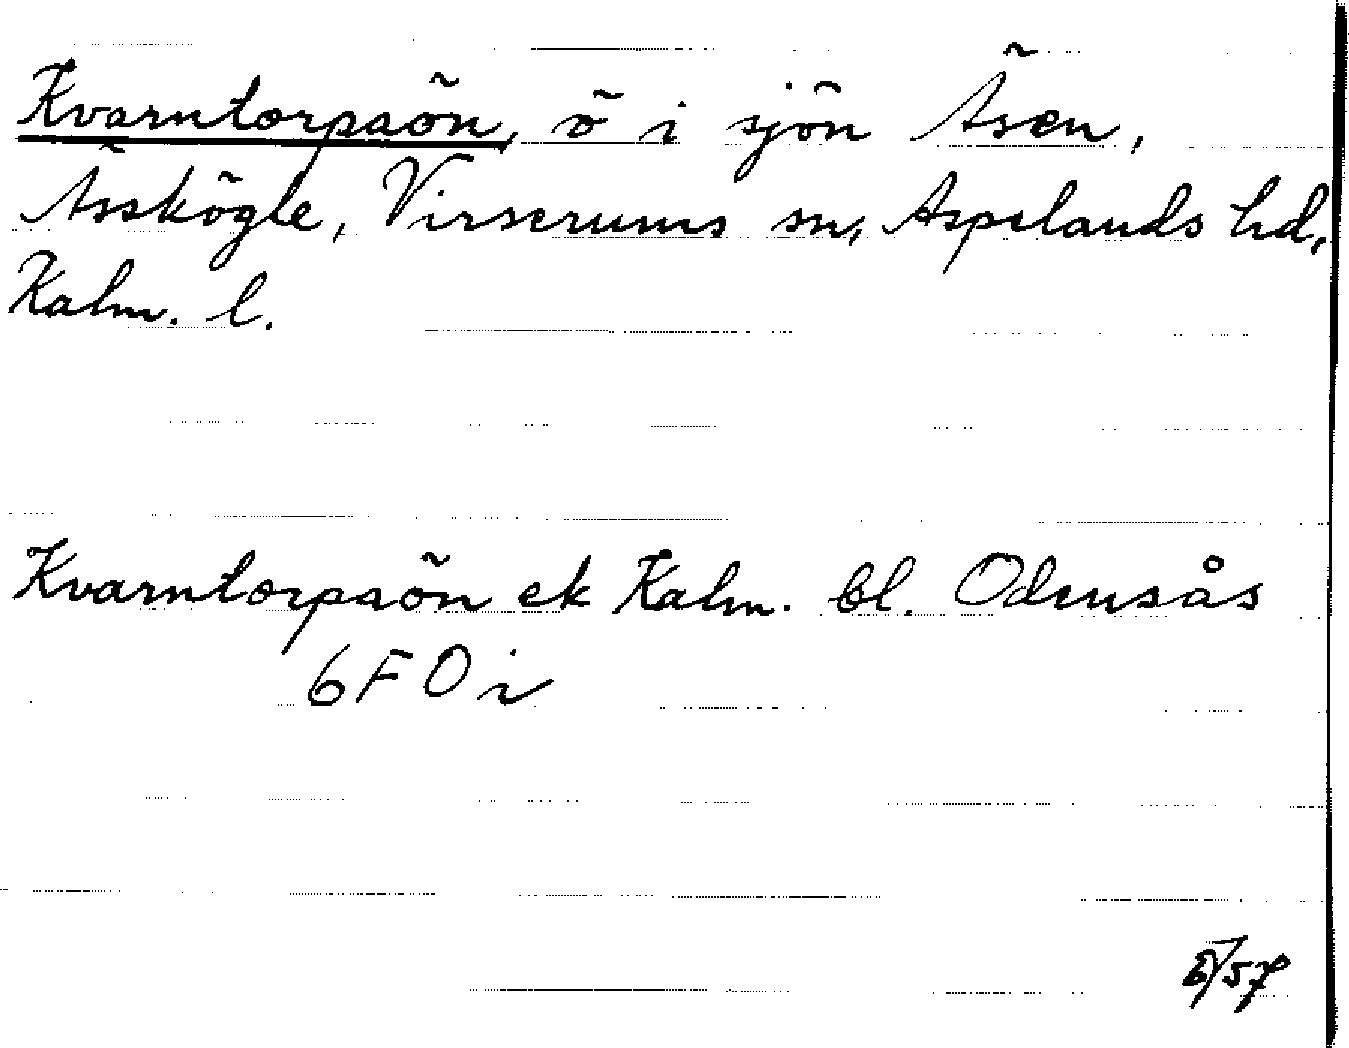 Kvarntorpaön, ö i sjön Äsen,
Ässkögle, Virserums sn, Aspelands hd,
Kalm. l.
Kvarntorpaön ek Kalm. bl. Odensås
6F0i
6/57